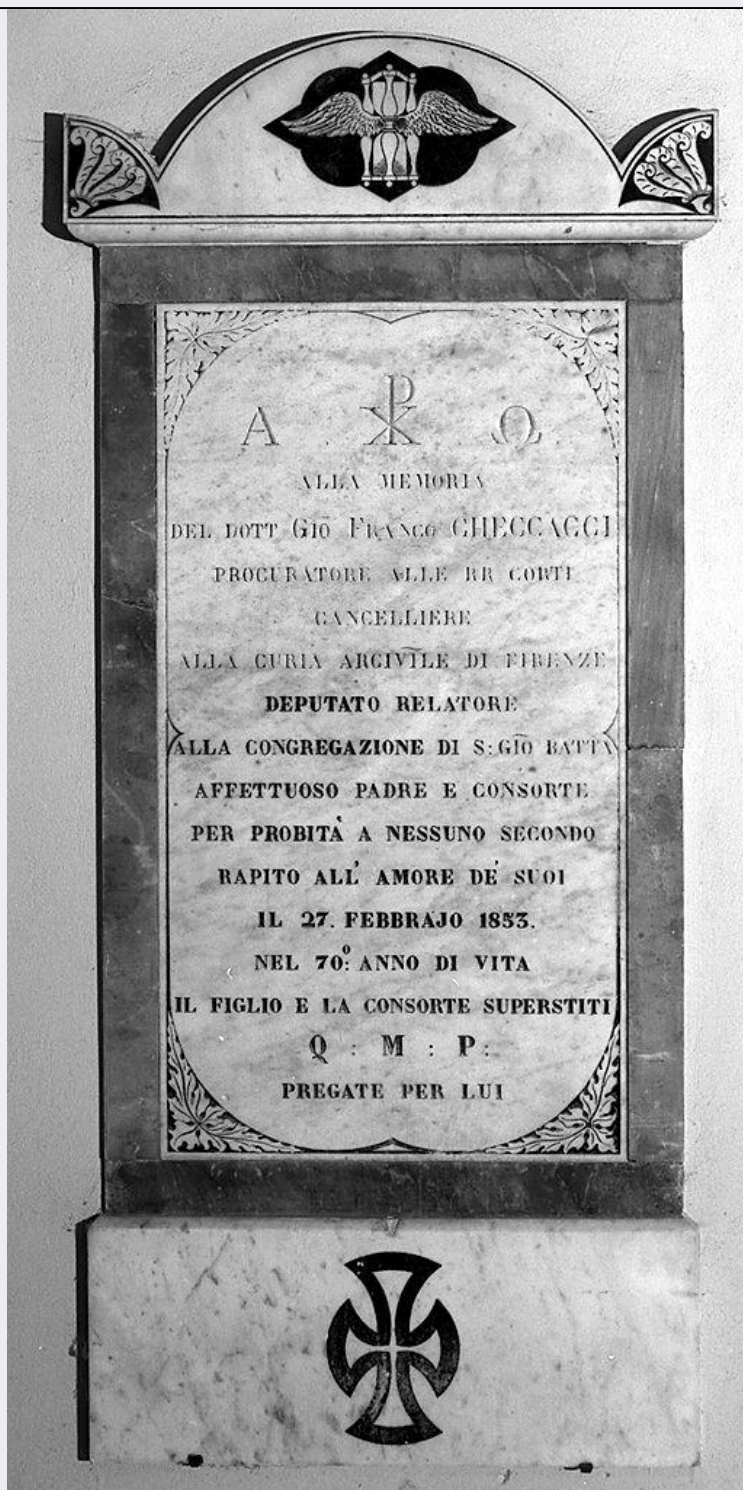 Α ☧ Ω
ALLA MEMORIA
DEL DOTT GIŌ FRANCO CHECCACCI
PROCURATORE ALLE RR CORTI
CANCELLIERE
ALLA CURIA ARCIVĪLE DI FIRENZE
DEPUTATO RELATORE
ALLA CONGREGAZIONE DI S: GIŌ BATTA
AFFETTUOSO PADRE E CONSORTE
PER PROBITÀ A NESSUNO SECONDO
RAPITO ALL' AMORE DE' SUOI
IL 27. FEBBRAJO 1853.
NEL 70:º ANNO DI VITA
IL FIGLIO E LA CONSORTE SUPERSTITI
Q : M : P :
PREGATE PER LUI